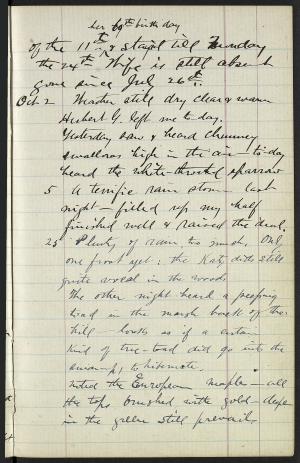 her 69th birth day
of the 11th & stayed till Sunday
the 24th. Wife is still absent
gone since Jul 26th.
Oct 2 Weather still dry clear & warm
Hubert G. left me to-day.
Yesterday saw & heard chimney
swallows high in the air - to-day
heard the white-throated sparrow
5 A terrific rain storm last
night - filled up my half
finished well & raised the devil.
25 Plenty of rain too much. Only
one frost yet; the Katy dids still
quite vocal in the woods.
The other night heard a peeping
toad in the marsh back of the
hill - looks as if a certain
kind of tree-toad did go into the
swamps to hibernate.
Noted the European maples - all
the tops brushed with gold - deep
in the green still prevails.